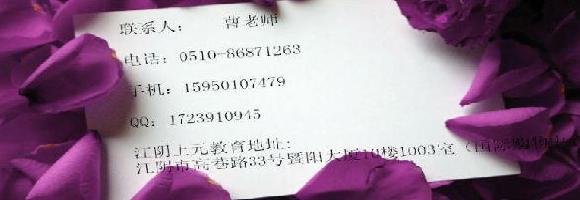 联系人： 曹老师
电话：0510-86871263
手机：15950107479
QQ：1723910945
江阴上元教育地址：
江阴市高巷路33号暨阳大厦10楼1003室（国际购物